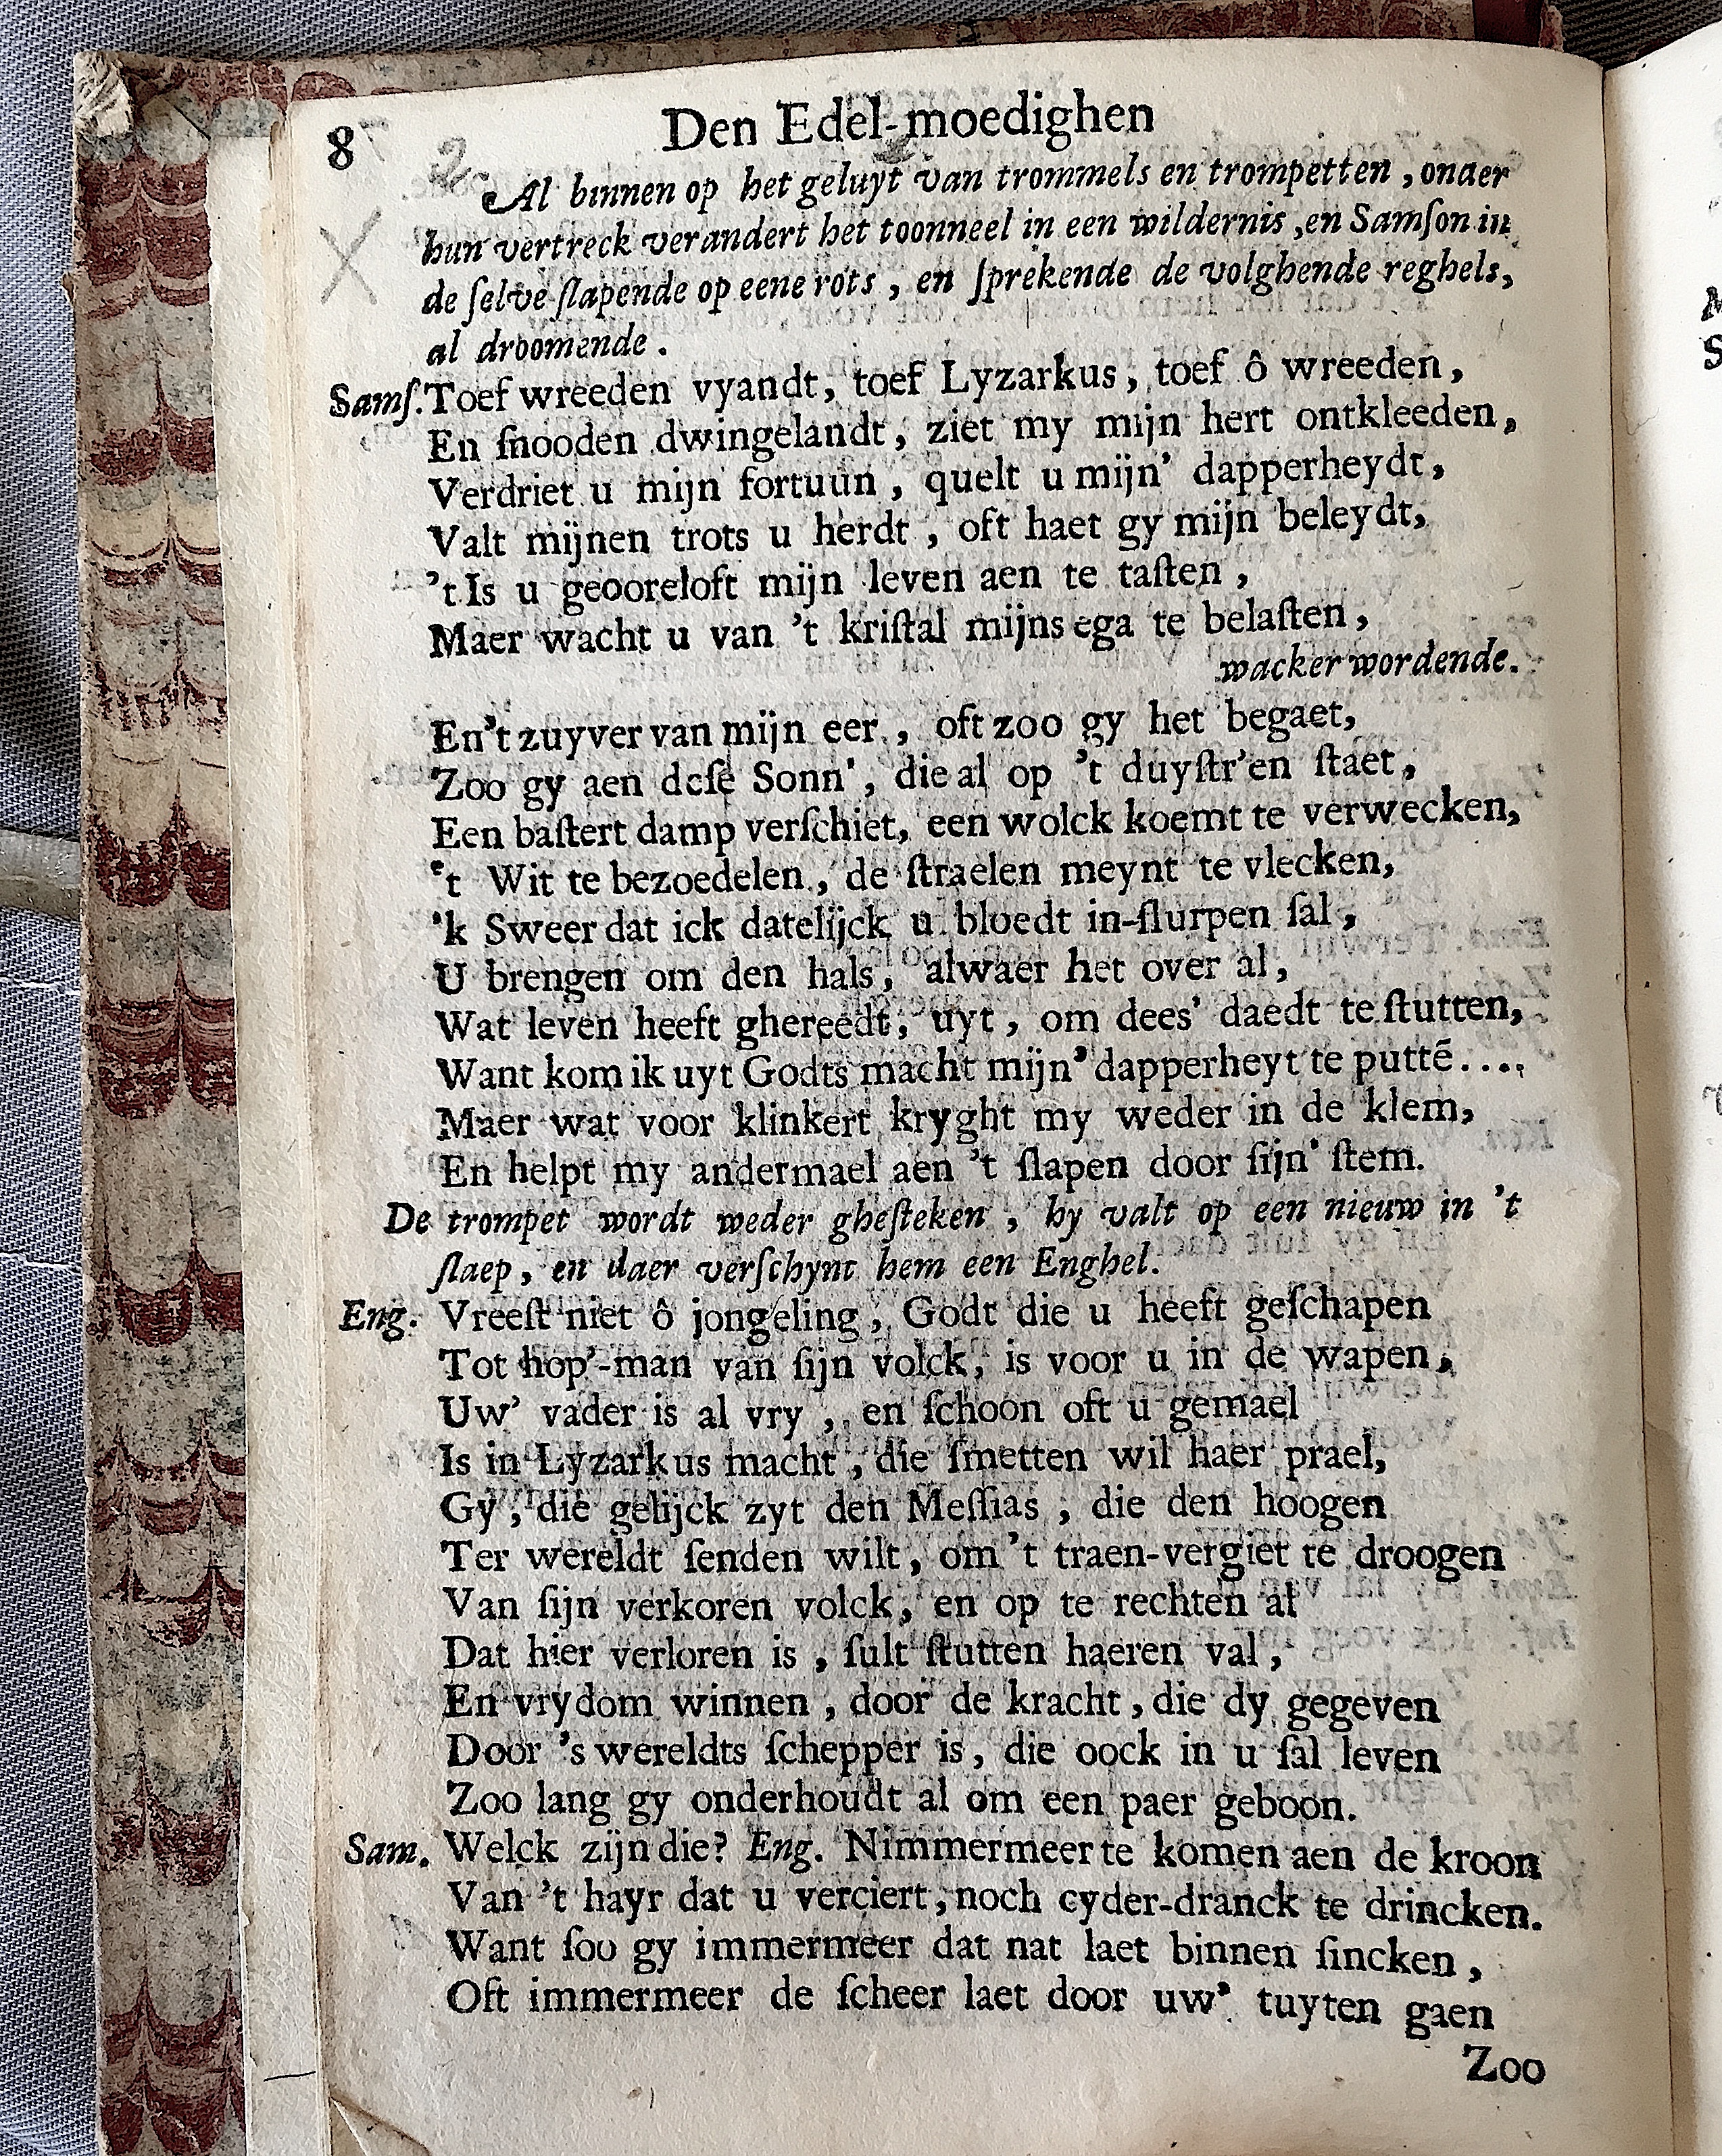 8 Den Edel-moedighen
Al binnen op het geluyt van trommels en trompetten, onder
hun vertreck verandert het toonneel in een wildernis, en Samſon in
de ſelve ſlapende op eene rots, en ſprekende de volghende reghels,
al droomende.
Samſ. Toef wreeden vyandt, toef Lyzarkus, toef ô wreeden,
En ſnooden dwingelandt, ziet my mijn hert ontkleeden,
Verdriet u mijn fortuun, quelt u mijn' dapperheydt,
Valt mijnen trots u herdt, oft haet gy mijn beleydt,
't Is u geooreloft mijn leven aen te taſten,
Maer wacht u van 't kriſtal mijns ega te belaſten,
wacker wordende.
En't zuyver van mijn eer, oft zoo gy het begaet,
Zoo gy aen deſe Sonn', die al op 't duyſtr'en ſtaet,
Een baſtert damp verſchiet, een wolck koemt te verwecken,
't Wit te bezoedelen, de ſtraelen meynt te vlecken,
'k Sweer dat ick datelijck u bloedt in-ſlurpen ſal,
U brengen om den hals, alwaer het over al,
Wat leven heeft ghereedt, uyt, om dees' daedt te ſtutten,
Want kom ik uyt Godts macht mijn' dapperheyt te puttē....
Maer wat voor klinkert kryght my weder in de klem,
En helpt my andermael aen 't ſlapen door ſijn' ſtem.
De trompet wordt weder gheſteken, hy valt op een nieuw in 't
ſlaep, en daer verſchynt hem een Enghel.
Eng. Vreeſt niet ô jongeling, Godt die u heeft geſchapen
Tot hop'-man van ſijn volck, is voor u in de wapen,
Uw' vader is al vry, en ſchoon oft u gemael
Is in Lyzarkus macht, die ſmetten wil haer prael,
Gy, die gelijck zyt den Meſſias, die den hoogen
Ter wereldt ſenden wilt, om 't traen-vergiet te droogen
Van ſijn verkoren volck, en op te rechten al
Dat hier verloren is, ſult ſtutten haeren val,
En vrydom winnen, door de kracht, die dy gegeven
Door 's wereldts ſchepper is, die oock in u ſal leven
Zoo lang gy onderhoudt al om een paer geboon.
Sam. Welck zijn die? Eng. Nimmermeer te komen aen de kroon
Van 't hayr dat u verciert, noch cyder-dranck te drincken.
Want ſou gy immermeer dat nat laet binnen ſincken,
Oft immermeer de ſcheer laet door uw' tuyten gaen
Zoo